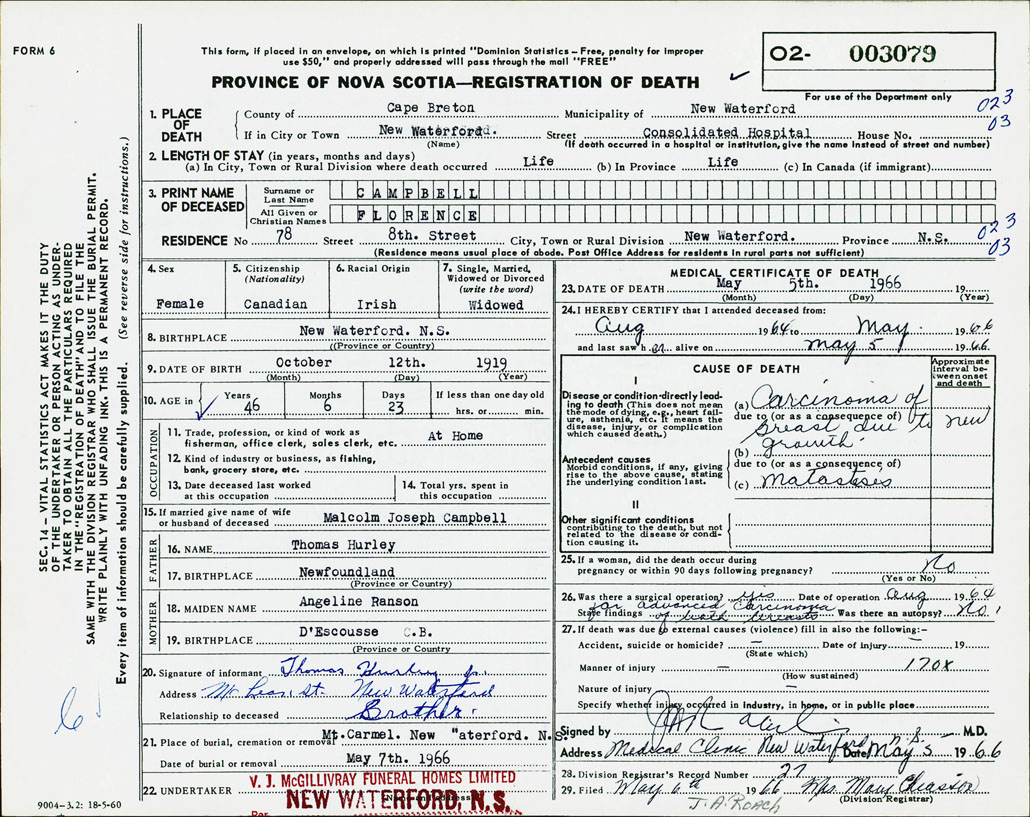 FORM 6
This form, if placed in an envelope, on which is printed "Dominion Statistics – Free, penalty for improper
use $50," and properly addressed will pass through the mail "FREE"
PROVINCE OF NOVA SCOTIA—REGISTRATION OF DEATH
02- 003079
For use of the Department only
SEC. 14 – VITAL STATISTICS ACT MAKES IT THE DUTY
OF THE UNDERTAKER OR PERSON ACTING AS UNDER-
TAKER TO OBTAIN ALL THE PARTICULARS REQUIRED
IN THE "REGISTRATION OF DEATH" AND TO FILE THE
SAME WITH THE DIVISION REGISTRAR WHO SHALL ISSUE THE BURIAL PERMIT.
WRITE PLAINLY WITH UNFADING INK. THIS IS A PERMANENT RECORD.
Every item of information should be carefully supplied. (See reverse side for instructions.)
1. PLACE OF DEATH
County of Cape Breton Municipality of New Waterford 023
03
If in City or Town New Waterford. Street Consolidated Hospital House No.
(Name) (If death occurred in a hospital or institution, give the name instead of street and number)
2. LENGTH OF STAY (in years, months and days)
(a) In City, Town or Rural Division where death occurred Life (b) In Province Life (c) In Canada (if immigrant)
3. PRINT NAME OF DECEASED
Surname or Last Name CAMPBELL
All Given or Christian Names FLORENCE
RESIDENCE No 78 Street 8th. Street City, Town or Rural Division New Waterford. Province N.S. 023
03
(Residence means usual place of abode. Post Office Address for residents in rural parts not sufficient)
4. Sex
Female
5. Citizenship (Nationality)
Canadian
6. Racial Origin
Irish
7. Single, Married, Widowed or Divorced (write the word)
Widowed
8. BIRTHPLACE New Waterford. N.S.
(Province or Country)
9. DATE OF BIRTH October 12th. 1919
(Month) (Day) (Year)
10. AGE in Years Months Days If less than one day old
46 6 23 hrs. or min.
OCCUPATION
11. Trade, profession, or kind of work as
fisherman, office clerk, sales clerk, etc. At Home
12. Kind of industry or business, as fishing,
bank, grocery store, etc.
13. Date deceased last worked
at this occupation
14. Total yrs. spent in
this occupation
15. If married give name of wife
or husband of deceased Malcolm Joseph Campbell
FATHER
16. NAME Thomas Hurley
17. BIRTHPLACE Newfoundland
(Province or Country)
MOTHER
18. MAIDEN NAME Angeline Ranson
19. BIRTHPLACE D'Escousse C.B.
(Province or Country)
20. Signature of informant Thomas Hurley Jr.
Address St. New Waterford
Relationship to deceased Brother.
6
21. Place of burial, cremation or removal Mt.Carmel. New "aterford. N.S.
Date of burial or removal May 7th. 1966
22. UNDERTAKER V. J. McGILLIVRAY FUNERAL HOMES LIMITED
NEW WATERFORD, N.S.
Per
9004–3.2: 18-5-60
MEDICAL CERTIFICATE OF DEATH
23. DATE OF DEATH May 5th. 1966
(Month) (Day) (Year)
24. I HEREBY CERTIFY that I attended deceased from:
Aug 1964 to May 1966
and last saw her alive on May 5 1966.
CAUSE OF DEATH
Approximate interval between onset and death
I
Disease or condition directly lead-
ing to death (This does not mean
the mode of dying, e.g., heart fail-
ure, asthenia, etc. It means the
disease, injury, or complication
which caused death.)
(a) Carcinoma of
due to (or as a consequence of)
breast due to new
(b) growth
due to (or as a consequence of)
(c) Matasteses
Antecedent causes
Morbid conditions, if any, giving
rise to the above cause, stating
the underlying condition last.
II
Other significant conditions
contributing to the death, but not
related to the disease or condi-
tion causing it.
25. If a woman, did the death occur during
pregnancy or within 90 days following pregnancy? No
(Yes or No)
26. Was there a surgical operation? yes Date of operation Aug 1964
State findings for advanced Carcinoma Was there an autopsy? No
of both breasts
27. If death was due to external causes (violence) fill in also the following:–
Accident, suicide or homicide? — Date of injury — 19
(State which)
Manner of injury — 170X
(How sustained)
Nature of injury —
Specify whether injury occurred in industry, in home, or in public place
Signed by M.D.
Address Medical Clinic New Waterford N.S. Date May 5 1966
28. Division Registrar's Record Number 27
29. Filed May 6th 1966 Mrs. Mary
(Division Registrar)
J.A. ROACH